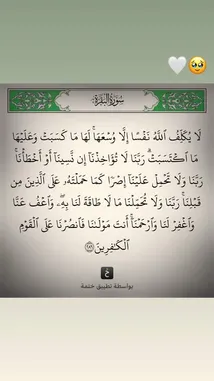 سُورَةُ البَقَرَةِ
لَا يُكَلِّفُ ٱللَّهُ نَفْسًا إِلَّا وُسْعَهَاۚ لَهَا مَا كَسَبَتْ وَعَلَيْهَا
مَا ٱكْتَسَبَتْۗ رَبَّنَا لَا تُؤَاخِذْنَآ إِن نَّسِينَآ أَوْ أَخْطَأْنَاۚ
رَبَّنَا وَلَا تَحْمِلْ عَلَيْنَآ إِصْرًا كَمَا حَمَلْتَهُۥ عَلَى ٱلَّذِينَ مِن
قَبْلِنَاۚ رَبَّنَا وَلَا تُحَمِّلْنَا مَا لَا طَاقَةَ لَنَا بِهِۦۖ وَٱعْفُ عَنَّا
وَٱغْفِرْ لَنَا وَٱرْحَمْنَآۚ أَنتَ مَوْلَىٰنَا فَٱنصُرْنَا عَلَى ٱلْقَوْمِ
ٱلْكَٰفِرِينَ ٢٨٦
خ
بواسطة تطبيق ختمة